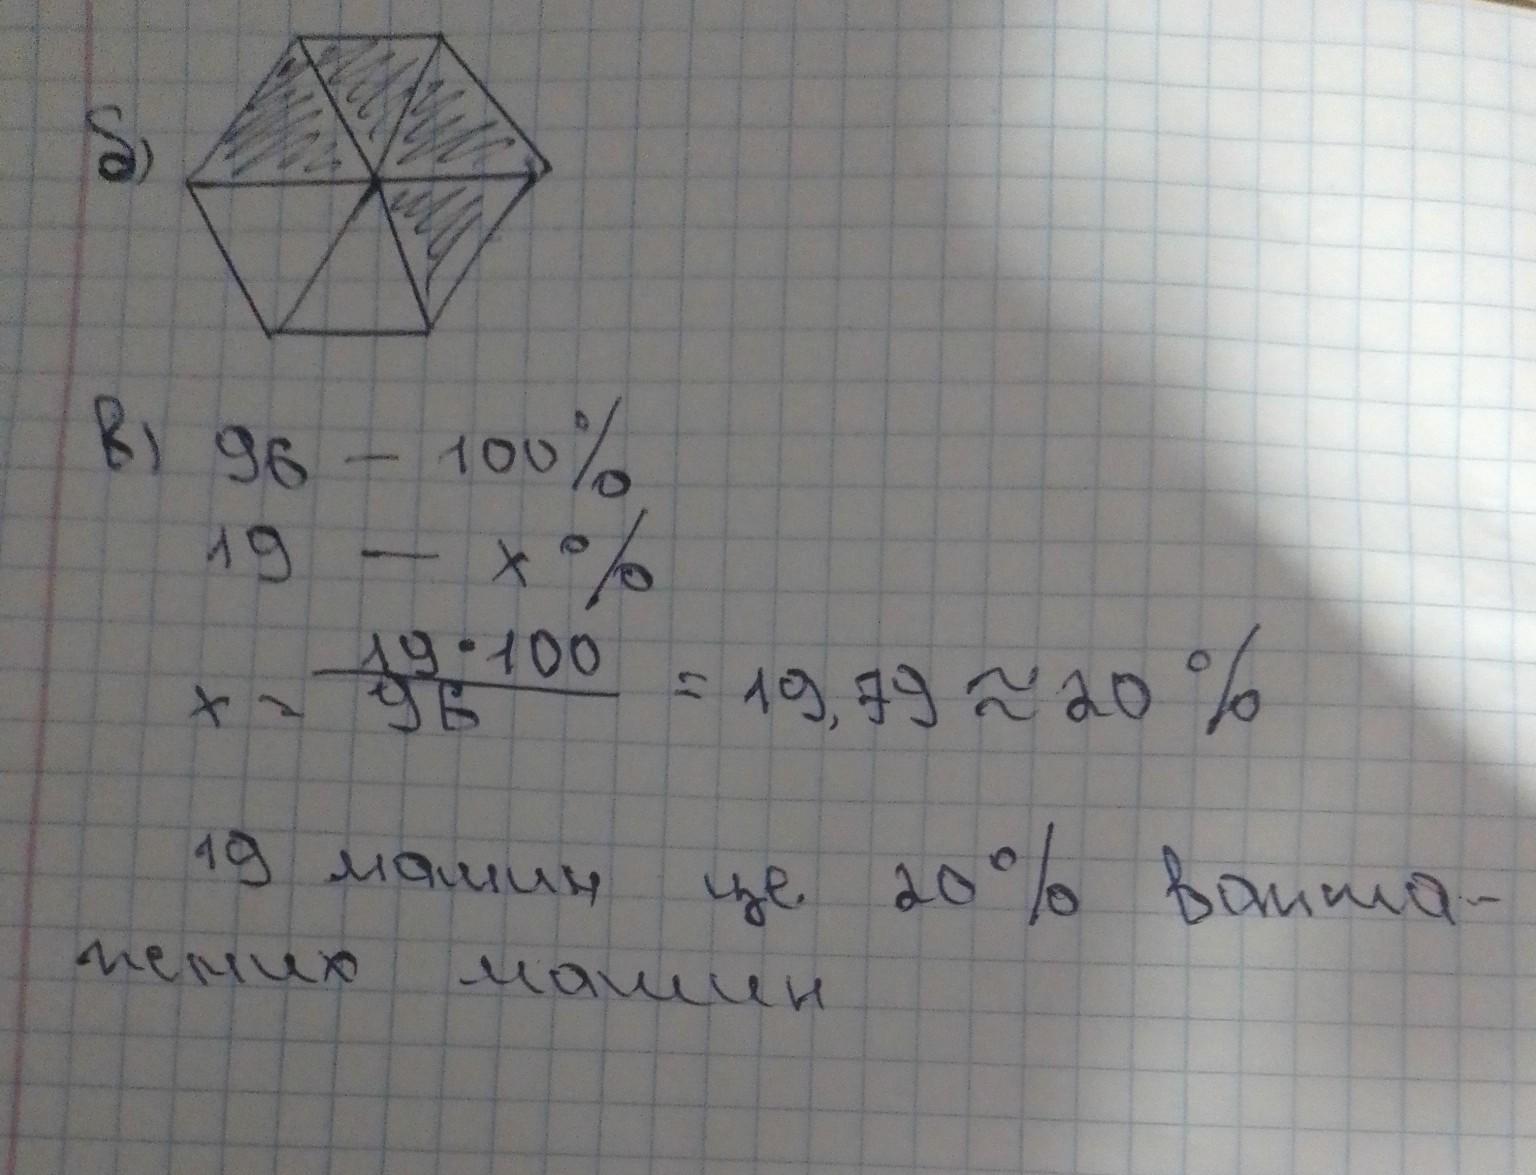 б)
в) 96 – 100%
19 — x%
x = 19·100 / 96 = 19,79 ≈ 20%
19 машин це 20% ванта-
жених машин